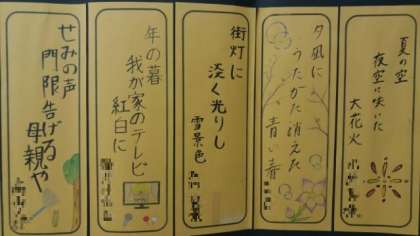 夏の空
夜空に咲いた
大花火
夕凪に
うたがた消えた
青い春
街灯に
淡く光りし
雪景色
年の暮
我が家のテレビ
紅白に
せみの声
門限告げる
母親や